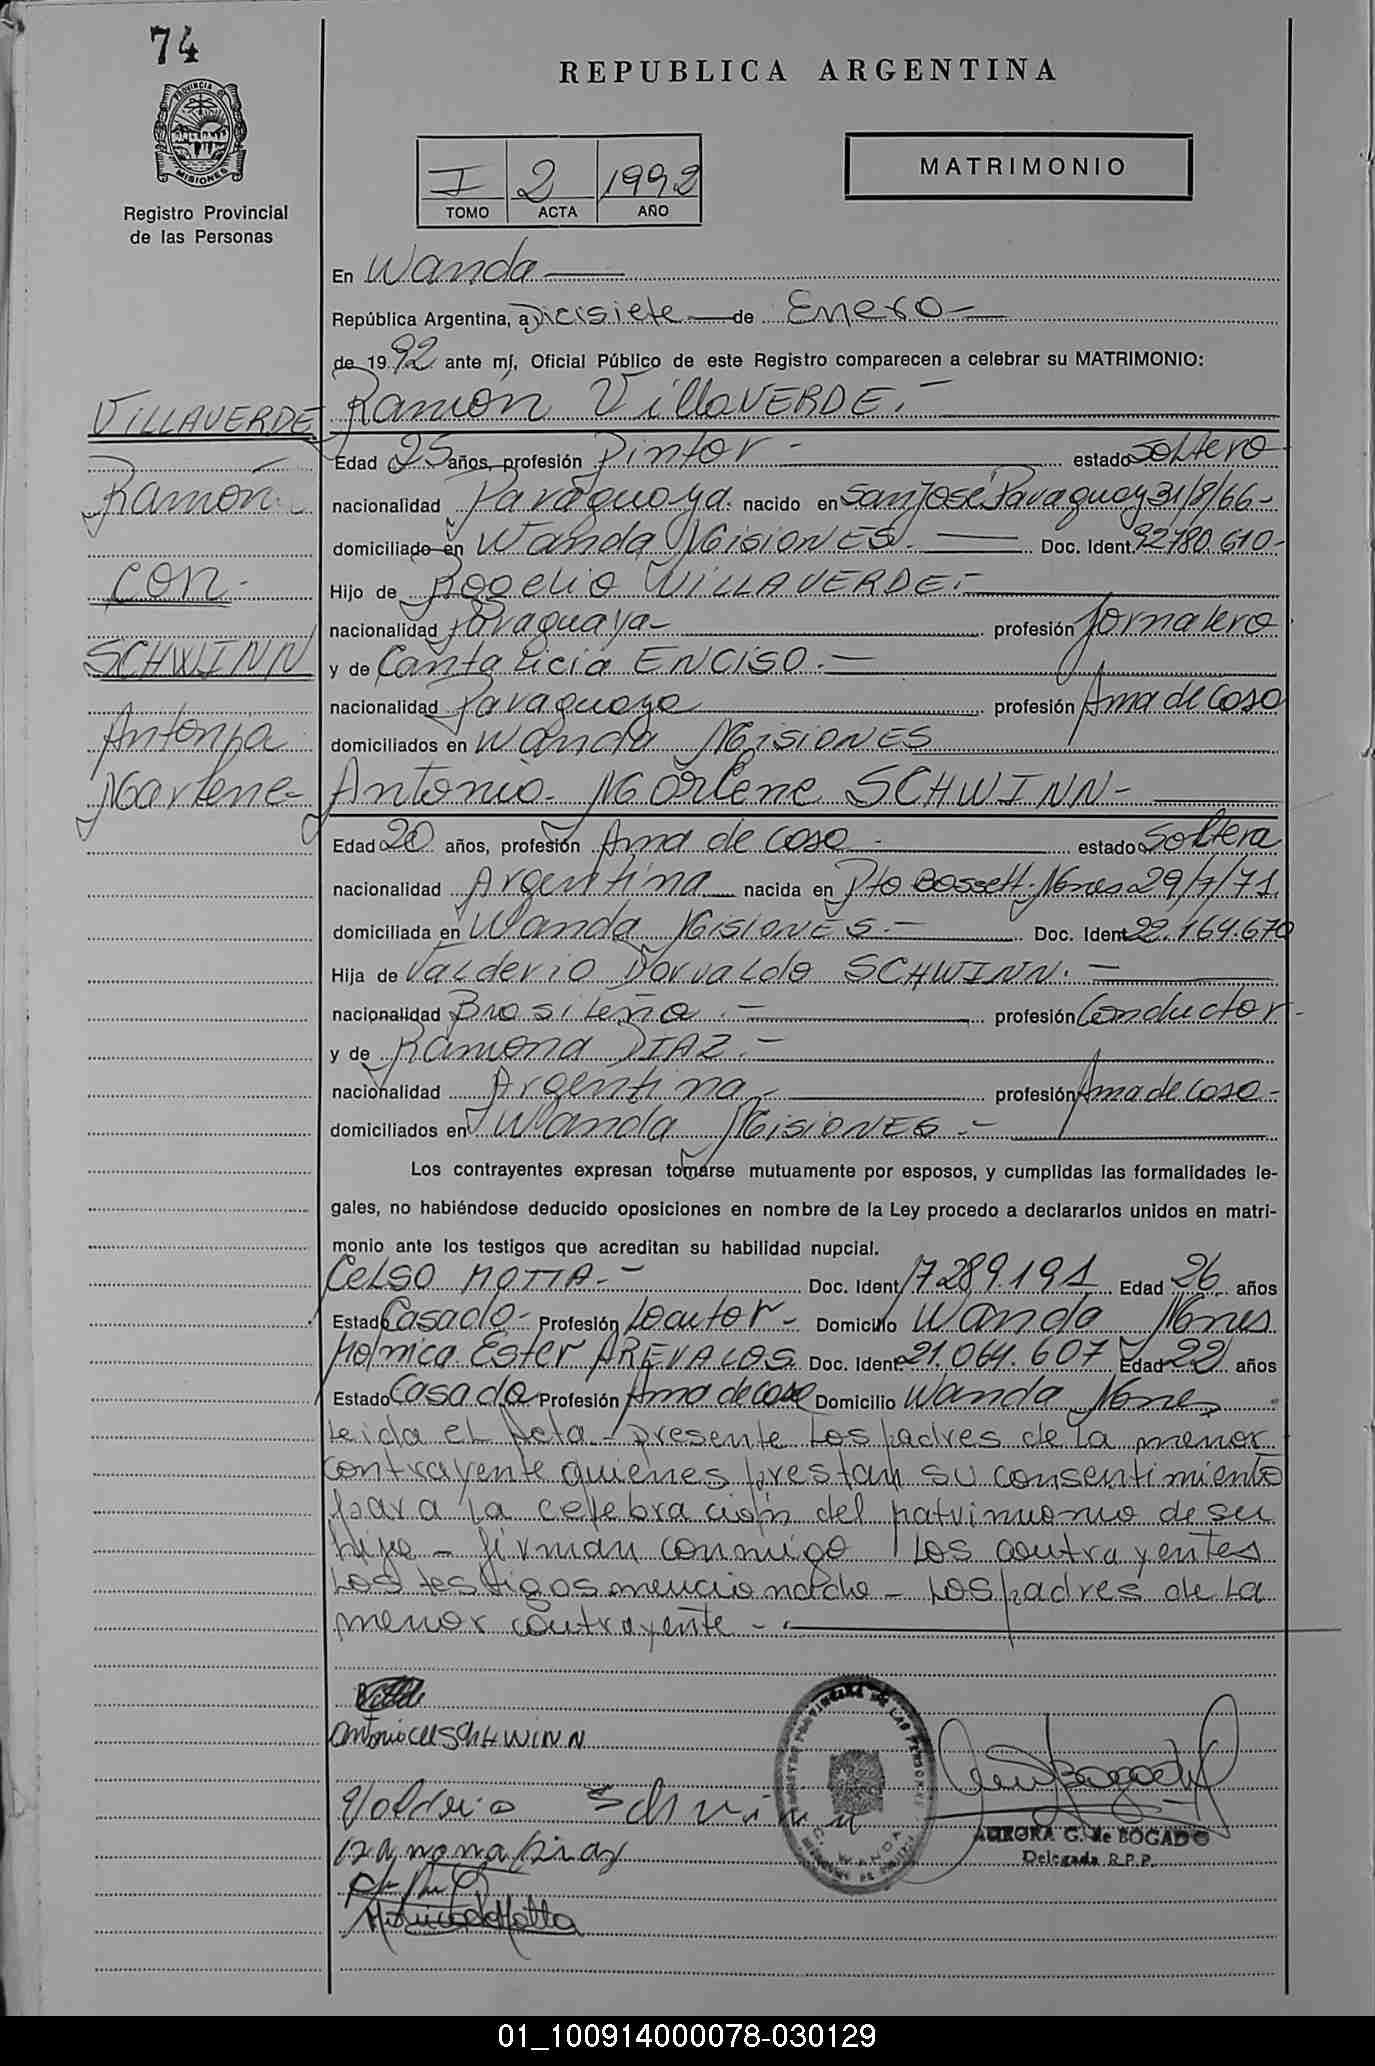 74
REPUBLICA ARGENTINA
PROVINCIA D
MISIONES
Registro Provincial
de las Personas
I 2 1992
TOMO ACTA AÑO
MATRIMONIO
En Wanda
República Argentina, a Dicisiete de Enero
de 1992 ante mí, Oficial Público de este Registro comparecen a celebrar su MATRIMONIO:
VILLAVERDE
Ramón
con
SCHWINN
Antonia
Marlene
Ramón VillaVERDE.
Edad 25 años, profesión Pintor estado soltero
nacionalidad Paraguaya nacido en San José Paraguay 31/8/66
domiciliado en Wanda MisioNES. Doc. Ident. 92780.610
Hijo de Rogelio VILLAVERDE
nacionalidad Paraguaya profesión Jornalero
y de Cantalicia ENCISO.
nacionalidad Paraguaya profesión Ama de casa
domiciliados en Wanda MISIONES
Antonia Marlene SCHWINN
Edad 20 años, profesión Ama de casa estado soltera
nacionalidad Argentina nacida en Pto Bossett. Mnes 29/7/71.
domiciliada en Wanda MISIONES. Doc. Ident 22.164.670
Hija de Valderio Dorvaldo SCHWINN.
nacionalidad Brasileña profesión Conductor
y de Ramona DIAZ.
nacionalidad Argentina profesión Ama de casa
domiciliados en Wanda MISIONES
Los contrayentes expresan tomarse mutuamente por esposos, y cumplidas las formalidades le-
gales, no habiéndose deducido oposiciones en nombre de la Ley procedo a declararlos unidos en matri-
monio ante los testigos que acreditan su habilidad nupcial.
CELSO MOTTA Doc. Ident 17289.191 Edad 26 años
Estado Casado Profesión Locutor Domicilio Wanda Mnes
Monica Ester AREVALOS Doc. Ident 21.064.607 Edad 22 años
Estado Casada Profesión Ama de casa Domicilio Wanda Mnes
Leida el Acta presente los padres de la menor
contrayente quienes prestan su consentimiento
para la celebración del matrimonio de su
hija - firman conmigo los contrayentes
Los testigos mencionado - Los padres de la
menor contrayente
SCHWINN
Valderio Schwinn
Ramona Diaz
Monica de Motta
WANDA
AURORA G. de BOGADO
Delegada R.P.P.
01_100914000078-030129